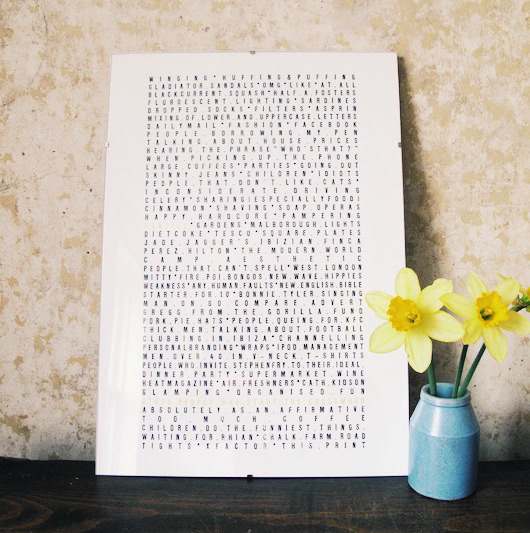 WINGING*HUFFING&PUFFING
GLADIATOR.SANDALS*OMG*LIKE*AT.ALL
BLACKCURRENT.SQUASH*HALF.A.FOSTERS
FLUROESCENT.LIGHTING*SARDINES
DROPPED.SOCKS*FILTERS*ASPRIN
MIXING.OF.LOWER.AND.UPPERCASE.LETTERS
DAILYMAIL*FASHION*FACEBOOK
PEOPLE.BORROWING.MY.PEN
TALKING.ABOUT.HOUSE.PRICES
HEARING.THE.PHRASE"WHO'STHAT?"
WHEN.PICKING.UP.THE.PHONE
LARGE.COFFEES*PARTIES*GOING.OUT
SKINNY.JEANS*CHILDREN*IDIOTS
PEOPLE.THAT.DON'T.LIKE.CATS*
INCONSIDERATE.DRIVING
CELERY*SHARING(ESPECIALLYFOOD)
CINNAMON*SHAVING*SOAP.OPERAS
HAPPY.HARDCORE*PAMPERING
*GARDENS*MALBOROUGH.LIGHTS
DIETCOKE*TESCO*SQUARE.PLATES
JADE.JAGGER'S.IBIZIAN.FINCA
PEREZ.HILTON*THE.MODERN.WORLD
CAM AESTHETIC
PEOPLE.THAT.CAN'T.SPELL*WEST.LONDON
MITTY*FIRE.POI.BONGOS.NEW.WAVE.HIPPIES
WEAKNESS*ANY.HUMAN.FAULTS*NEW.ENGLISH.BIBLE
STARTER.FOR.10*BONNIE.TYLER.SINGING
MAN.ON.GO.COMPARE.ADVERT
GREGG.FROM.THE.GORILLA.FUND
PORK.PIE.HATS*PEOPLE.QUEING.FOR.KFC
THICK.MEN.TALKING.ABOUT.FOOTBALL
CLUBBING.IN.IBIZA*CHANNELLING
PERSONALBRANDING*WRAPS*IPOD.MANAGEMENT
MEN.OVER.40.IN.V-NECK.T-SHIRTS
PEOPLE.WHO.INVITE.STEPHENFRY.TO.THEIR.IDEAL.
DINNER.PARTY*SUPERMARKET.WINE
HEATMAGAZINE*AIR.FRESHNERS*CATH.KIDSON
GLAMPING*ORGANISED.FUN
ABSOLUTELY.AS.AN.AFFIRMATIVE
TOO.MUCH.COFFEE
CHILDREN.DO.THE.FUNNIEST.THINGS.
WAITING.FOR.RHIAN*CHALK.FARM.ROAD
TIGHTS*XFACTOR*THIS.PRINT